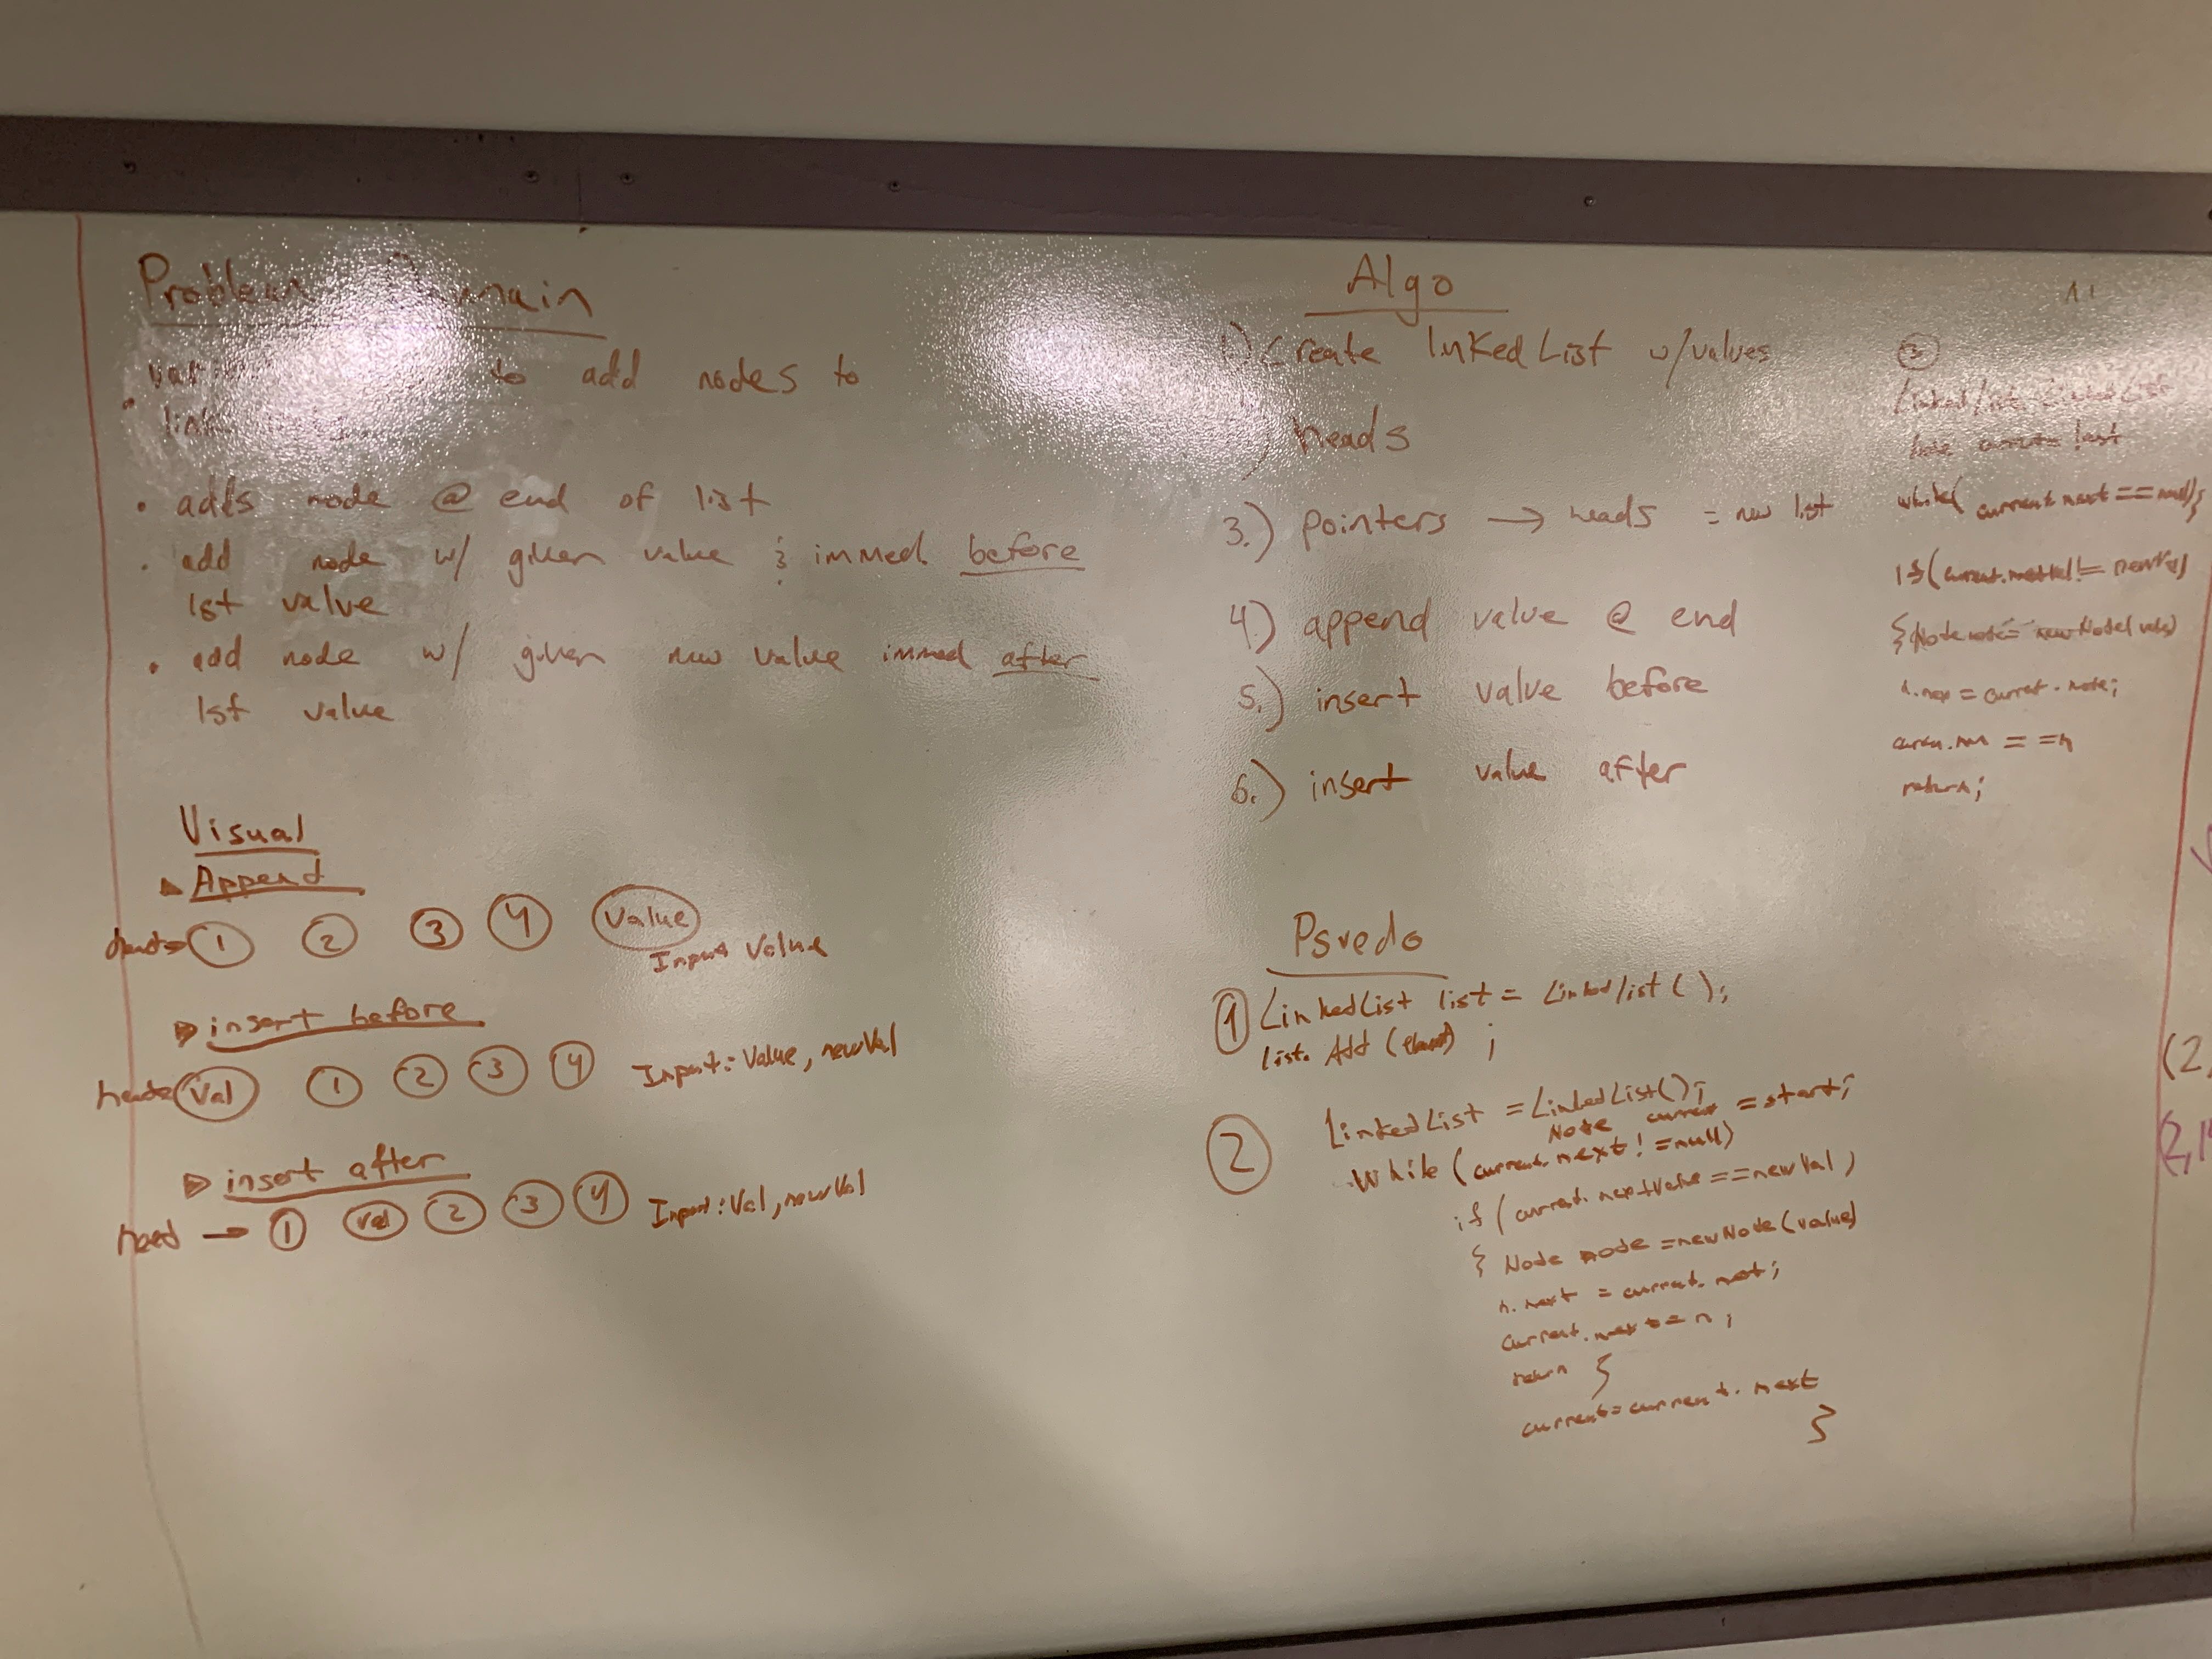 Problem Domain
to add nodes to
link
• adds node @ end of list
• add node w/ given value & immed before
1st value
• add node w/ given new value immed after
1st value
Visual
Append
heads 1 2 3 4 Value
Input Value
insert before
heads Val 1 2 3 4 Input: Value, newVal
insert after
head → 1 val 2 3 4 Input: Val, newVal
Algo
1) Create linked List w/values
) heads
3.) pointers → heads = new list
4.) append value @ end
5.) insert value before
6.) insert value after
Psuedo
1 LinkedList list = Linkedlist ( );
list. Add ( ) ;
2 LinkedList = LinkedList();
Node current = start;
While (current.next != null)
if (current. nextValue == newVal )
{ Node node = newNode (value)
n. next = current. next;
current. next = n ;
return }
current = current. next
}
3
Linkedlist LinkedList
current = last
while( current next == null);
if( != newVal)
{ Node node = new Node( )
= current . note;
= = n
return;
(2,